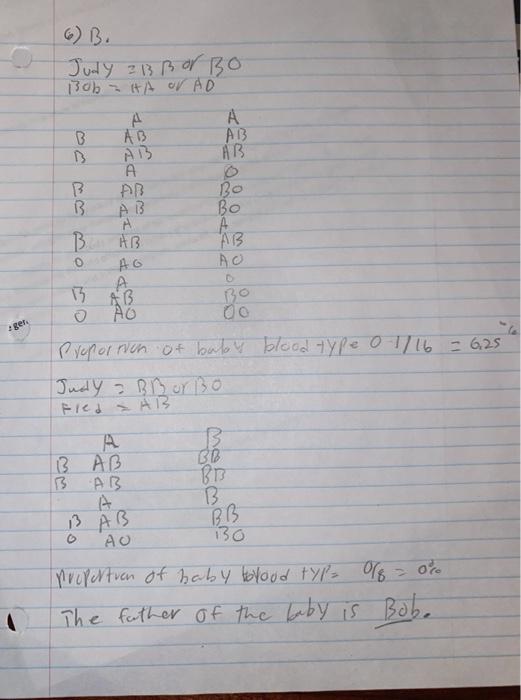 6) B.
Judy = BB or BO
Bob = AA or AO
A A
B AB AB
B AB AB
A O
B AB BO
B AB BO
A A
B AB AB
O AO AO
A O
B AB BO
O AO OO
Proportion of baby blood type O 1/16 = 6.25%
Judy = BB or BO
Fred = AB
A B
B AB BB
B AB BB
A B
B AB BB
O AO BO
Proportion of baby blood type 0/8 = 0%
The father of the baby is Bob.